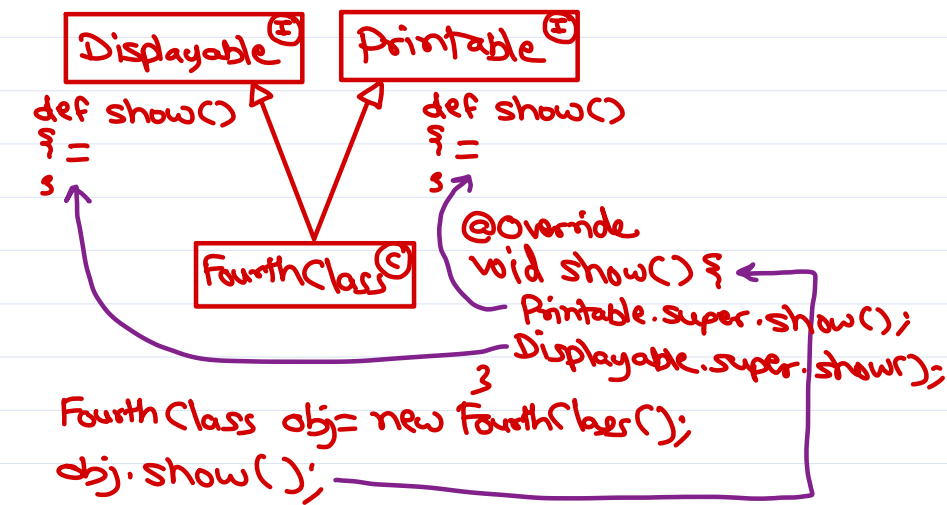 Displayable I
Printable I
def show()
{ =
}
def show()
{ =
}
FourthClass C
@Override
void show() {
Printable.super.show();
Displayable.super.show();
}
FourthClass obj= new FourthClass();
obj.show();